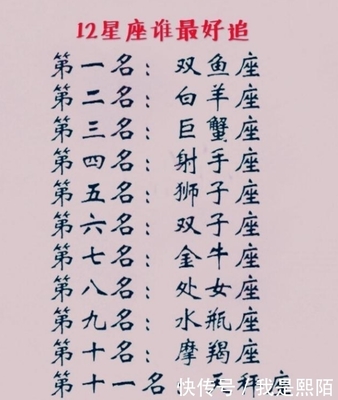 12星座谁最好追
第一名：双鱼座
第二名：白羊座
第三名：巨蟹座
第四名：射手座
第五名：狮子座
第六名：双子座
第七名：金牛座
第八名：处女座
第九名：水瓶座
第十名：摩羯座
第十一名：天秤座
快传号/我是熙陌